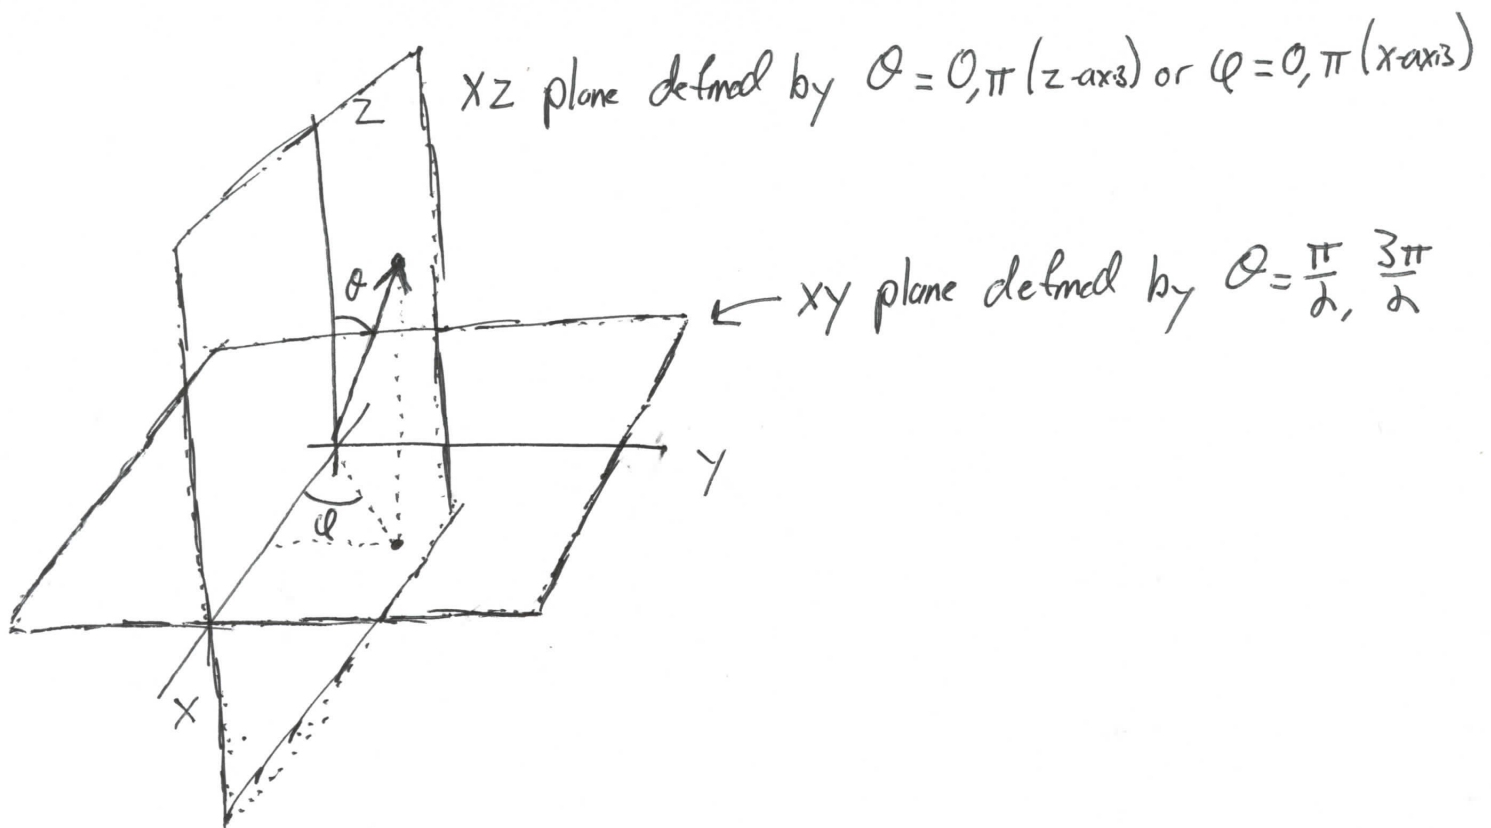 xz plane defined by θ = 0, π (z-axis) or φ = 0, π (x-axis)
z
θ
xy plane defined by θ = π/2, 3π/2
y
φ
x